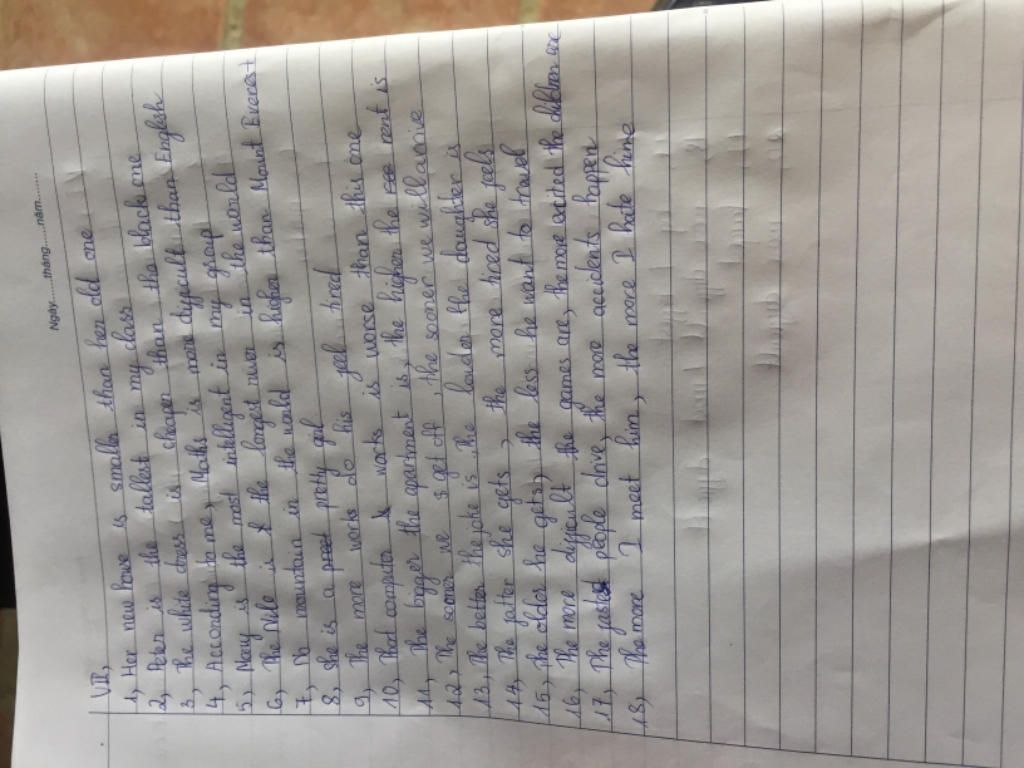 Ngày......tháng......năm......
VII,
1, Her new house is smaller than her old one
2, Peter is the tallest in my class
3, The white dress is cheaper than the black one
4, According to me, Maths is more difficult than English
5, Mary is the most intelligent in my group
6, The Nile is the longest river in the world
7, No mountain in the world is higher than Mount Everest
8, She is a pretty girl
9, The more works do his feel tired
10, That computer works is worse than this one
11, The bigger the apartment is, the higher the rent is
12, The sooner we get off, the sooner we will arrive
13, The better the joke is, the louder the laughter is
14, The fatter she gets, the more tired she feels
15, The older he gets, the less he want to travel
16, The more difficult the games are, the more excited the children are
17, The faster people drive, the more accidents happen
18, The more I meet him, the more I hate hime